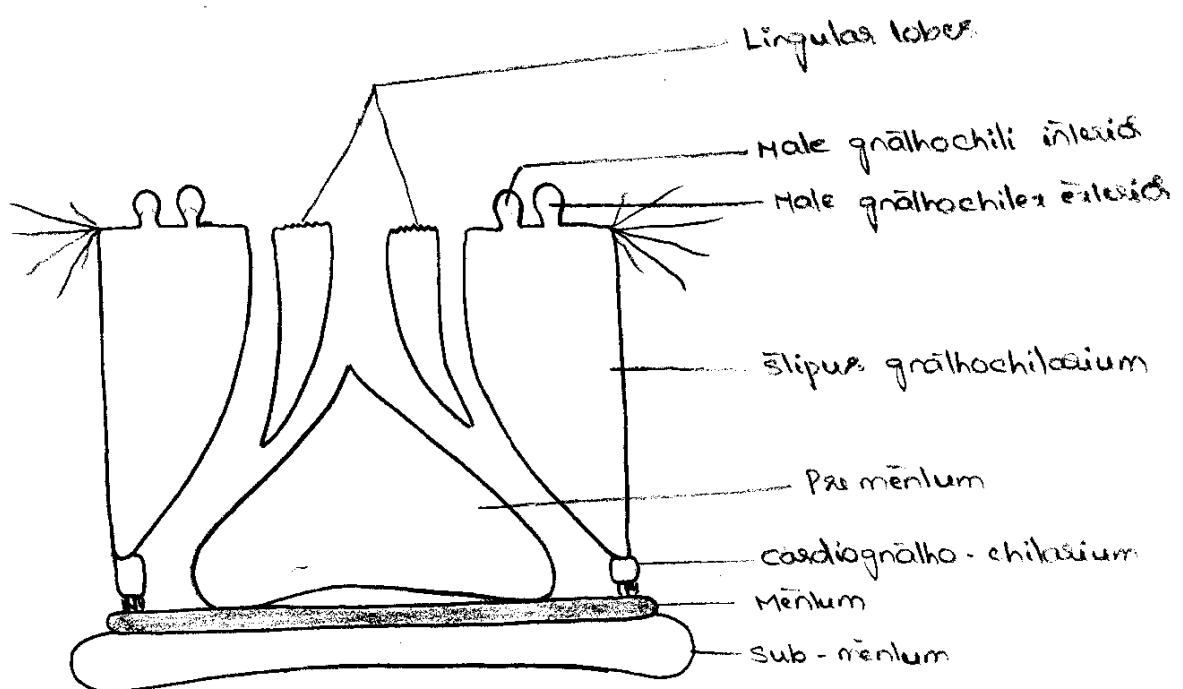 Lingular lobes
Male gnathochili interior
Male gnathochiles exterior
Stipus gnathochilarium
Pre mentum
Cardiognatho - chilarium
Mentum
Sub - mentum